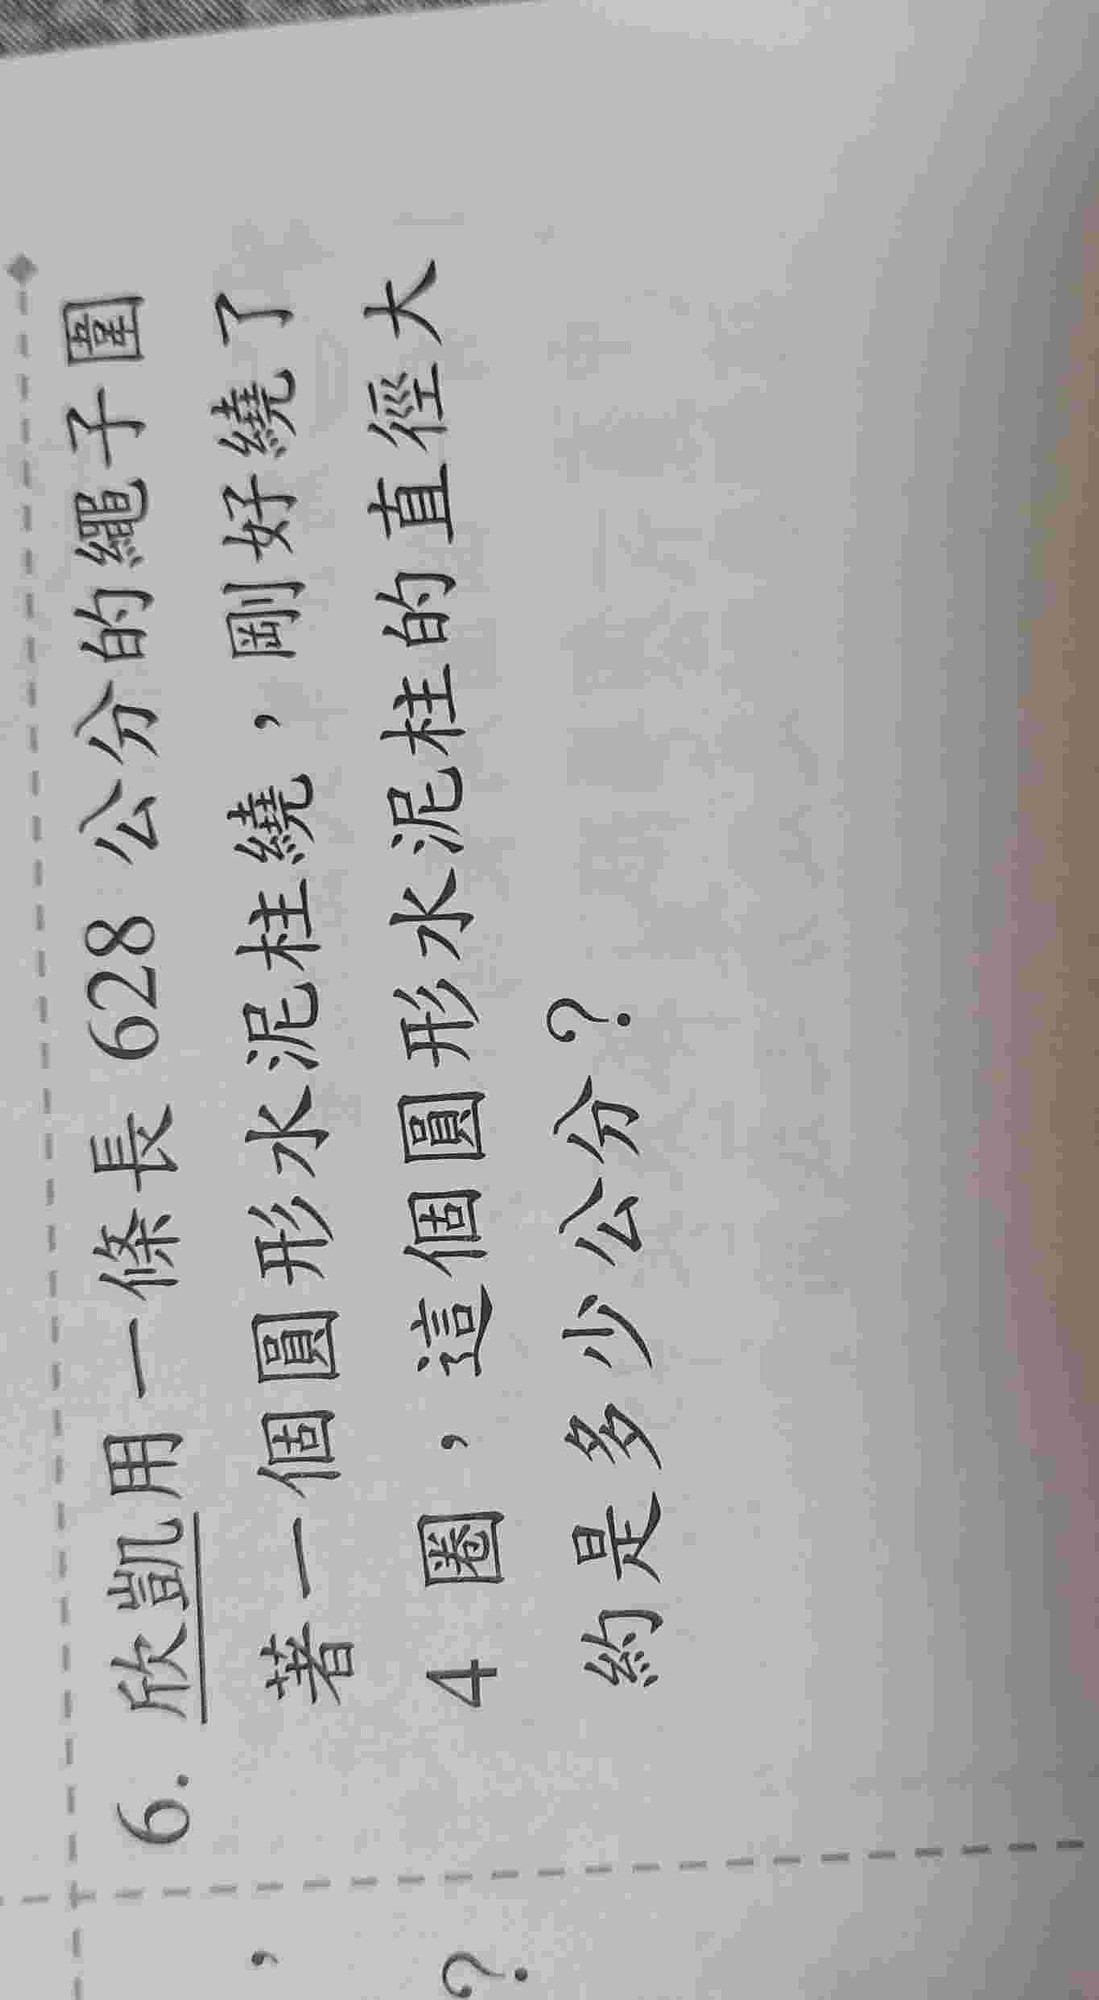 6. 欣凱用一條長 628 公分的繩子圍
著一個圓形水泥柱繞，剛好繞了
4 圈，這個圓形水泥柱的直徑大
約是多少公分？
，
？